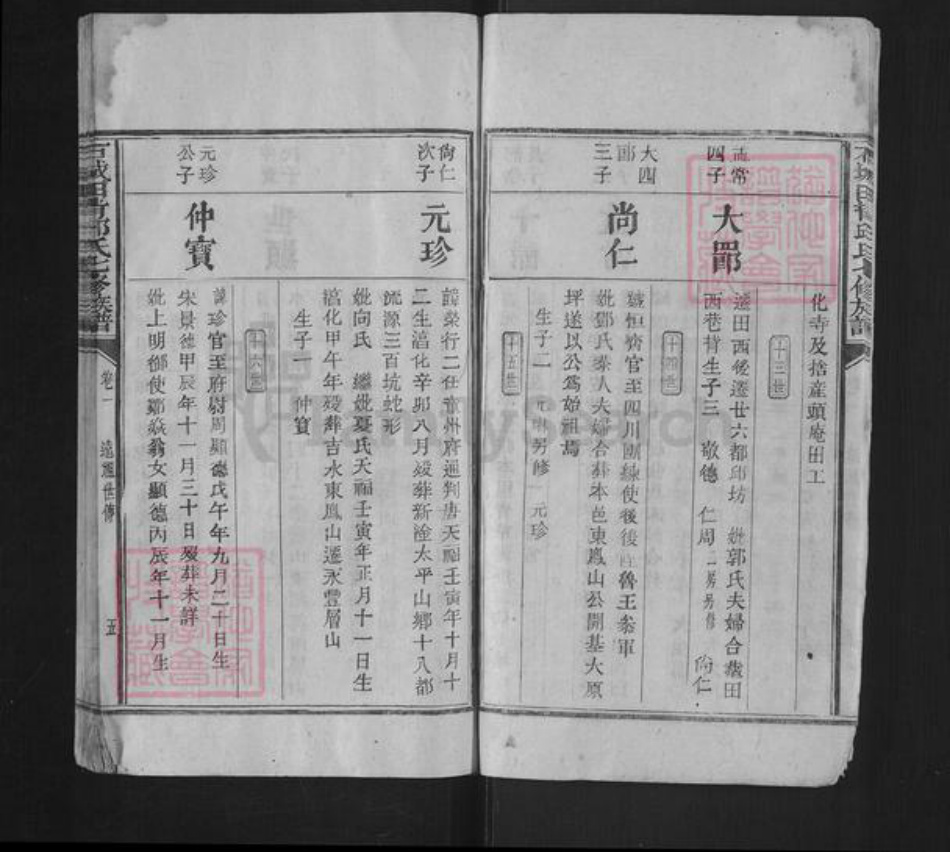 化寺及捨産頭庵田工
十三世
四子
大郢
遷田西後遷廿六都邱坊 妣郭氏夫婦合葬田
西巷背生子三 敬德 仁周二男另修 尚仁
十四世
大四
郎
三子
尚仁
號恒齊官至四川團練使後後 魯王叅軍
妣鄧氏泰人夫婦合葬本邑東鳳山公開基大原
坪遂以公爲始祖焉
生子二 元琳另修 元珍
十五世
尙仁
次子
元珍
諱榮行二任 州府通判唐天福壬寅年十月十
二生滛化辛卯八月歿葬新淦太平山鄉十八都
流源三百坑蛇形
妣向氏 繼妣夏氏天福壬寅年正月十一日生
滛化甲午年歿葬吉水東鳳山遷永豐層山
生子一 仲寶
十六世
元珍
公子
仲寶
諱珍官至府尉周顯德戊午年九月二十日生
宋景德甲辰年十一月三十日歿葬未詳
妣上明御使鄒 翁女顯德丙辰年十一月生
氏七修族譜
卷一
遠 世傳
五
FamilySearch